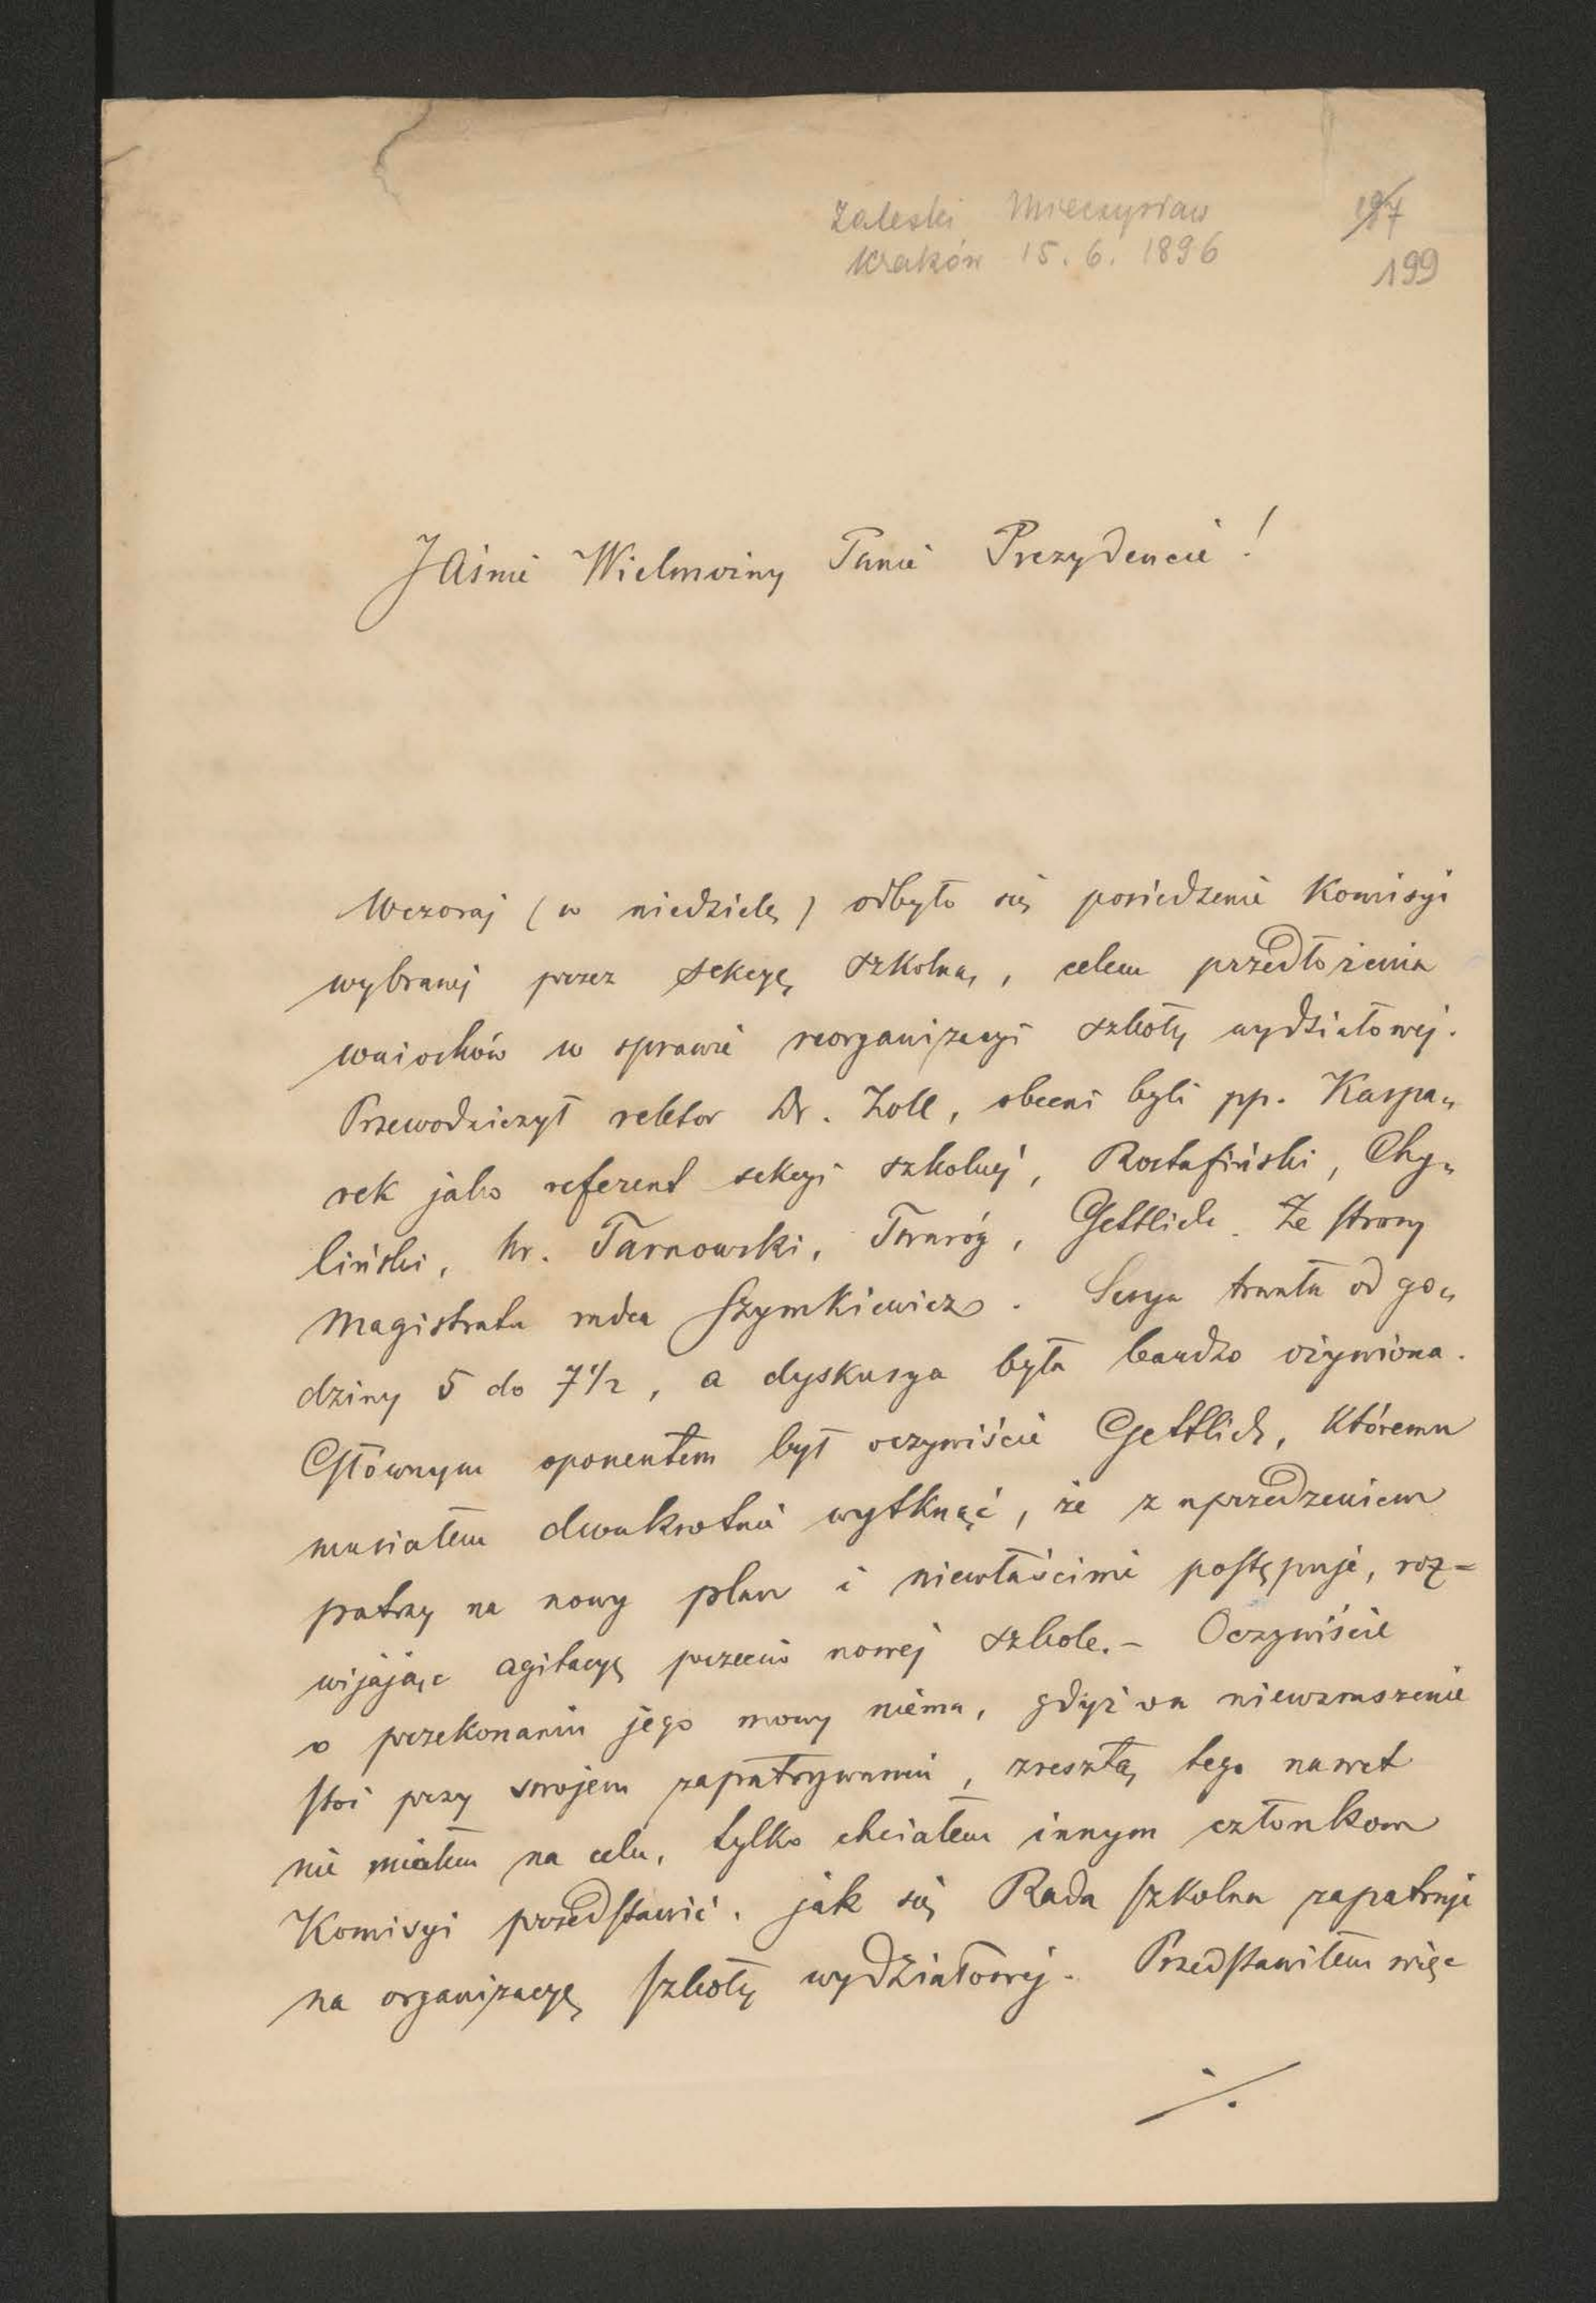 Zaleski Mieczysław
Kraków 15. 6. 1896
197
199
JAśnie Wielmożny Panie Prezydencie!
Wczoraj (w niedzielę) odbyło się posiedzenie Komisyi
wybranej przez sekcyę szkolną, celem przedłożenia
wniosków w sprawie reorganizacyi szkoły wydziałowej.
Przewodniczył rektor Dr. Zoll, obecni byli pp. Kaspa„
rek jako referent sekcyi szkolnej, Rostafiński, Chy„
liński, hr. Tarnowski, Twaróg, Gettlich. Ze strony
Magistratu radca Szymkiewicz. Sesya trwała od go„
dziny 5 do 7 1/2, a dyskusya była bardzo ożywiona.
Głównym oponentem był oczywiście Gettlich, któremu
musiałem dwukrotnie wytknąć, że z uprzedzeniem
patrzy na nowy plan i niewłaściwie postępuje, roz=
wijając agitacyę przeciw nowej szkole.– Oczywiście
o przekonaniu jego mowy niema, gdyż on niewzruszenie
stoi przy swojem zapatrywaniu, zresztą tego nawet
nie miałem na celu, tylko chciałem innym członkom
Komisyi przedstawić, jak się Rada szkolna zapatruje
na organizacyę szkoły wydziałowej. Przedstawiłem więc
./.